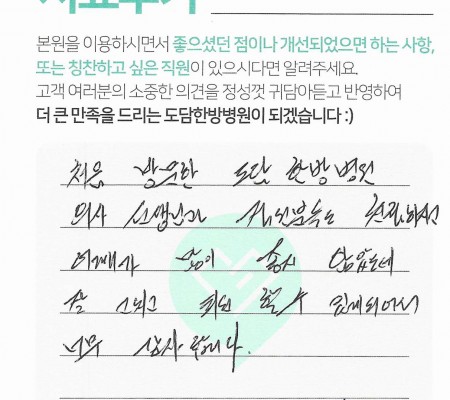 치료후기
본원을 이용하시면서 좋으셨던 점이나 개선되었으면 하는 사항,
또는 칭찬하고 싶은 직원이 있으시다면 알려주세요.
고객 여러분의 소중한 의견을 정성껏 귀담아듣고 반영하여
더 큰 만족을 드리는 도담한방병원이 되겠습니다 :)
처음 방문한 도담 한방병원
의사 선생님과 직원분들도 친절하셔서
어깨가 많이 좋지 않았는데
잘
너무 감사합니다.